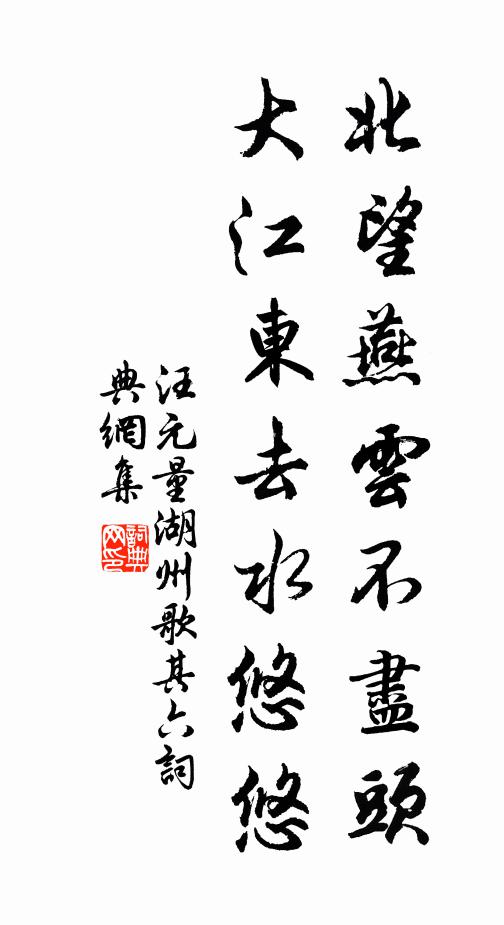 北望燕雲不盡頭
大江東去水悠悠
汪元量湖州歌其六詞
典網集
詞典
网印